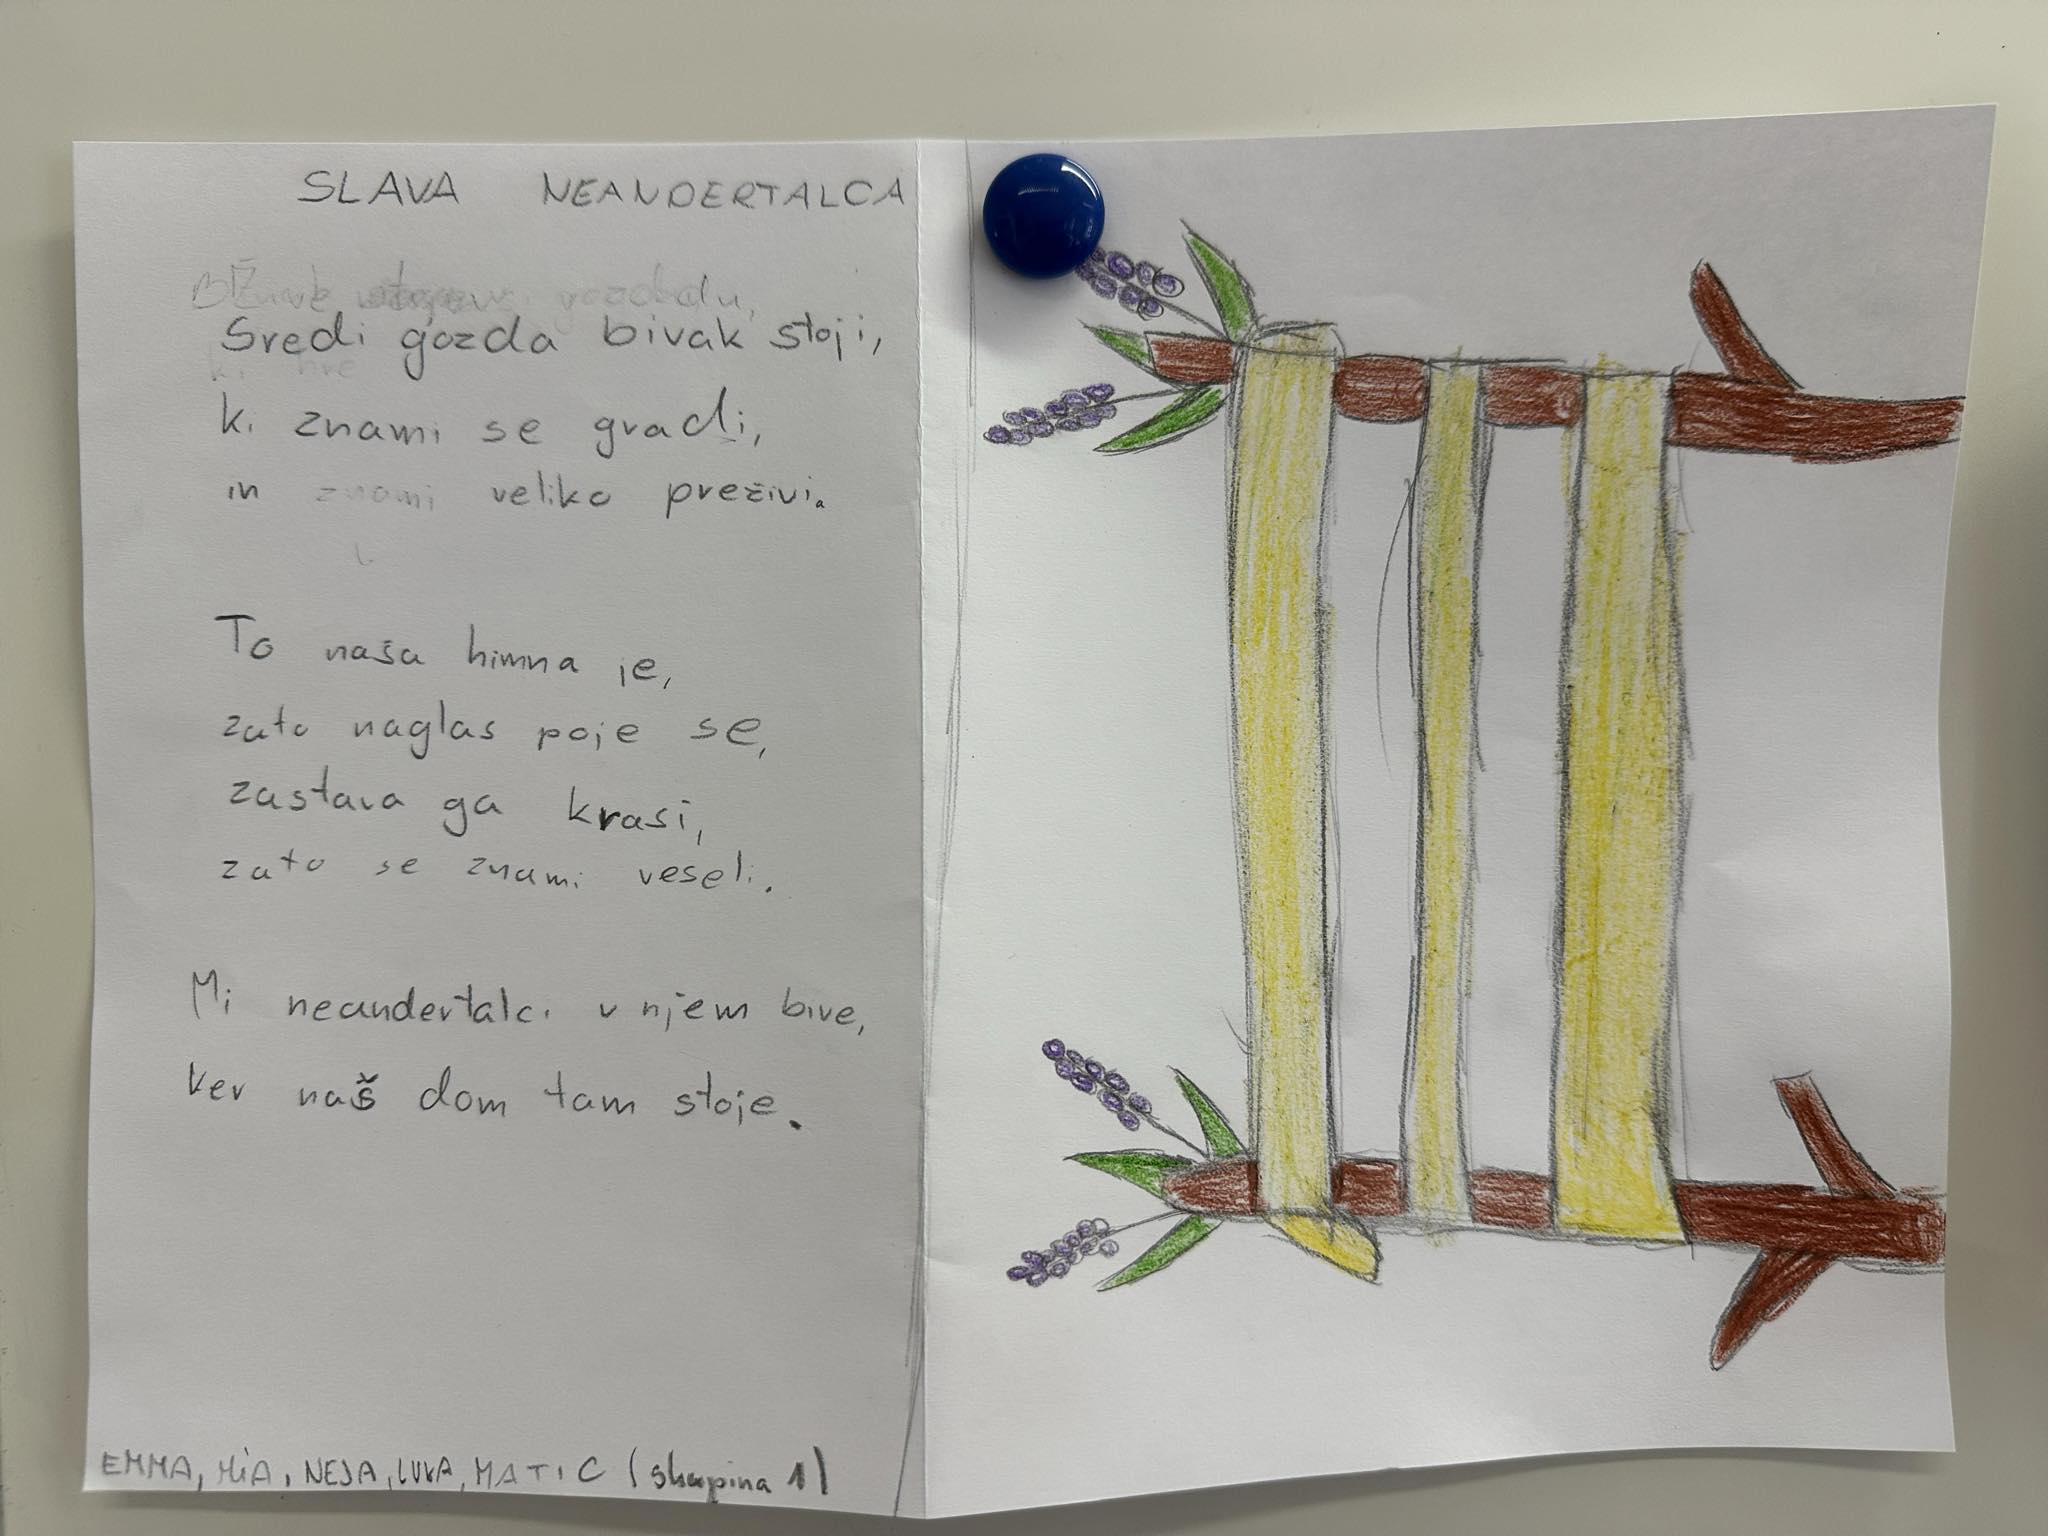 SLAVA NEANDERTALCA
Sredi gozda bivak stoji,
ki znami se gradi,
in znami veliko preživi.
To naša himna je,
zato naglas poje se,
zastava ga krasi,
zato se znami veseli.
Mi neandertalci v njem bive,
ker naš dom tam stoje.
EMMA, MIA, NEJA, LUKA, MATIC (skupina 1)